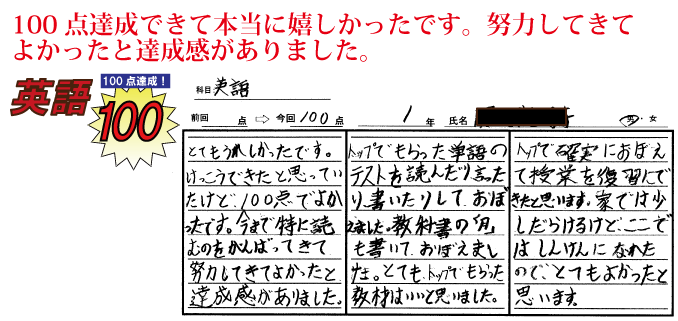 100点達成できて本当に嬉しかったです。努力してきて
よかったと達成感がありました。
英語
100点達成!
100
科目 英語
前回 点 ⇨ 今回 100 点 1 年 氏名 男・女
とてもうれしかったです。
けっこうできたと思ってい
たけど、100点でよか
ったです。今まで特に読
むのをがんばってきて
努力してきてよかったと
達成感がありました。
トップでもらった単語の
テストを読んだり言った
り、書いたりして、おぼ
えました。教科書の
も書いて、おぼえまし
た。とても、トップでもらった
教材はいいと思いました。
トップで確実におぼえ
て授業を復習にで
きたと思います。家では少
しだらけるけど、ここで
はしんけんになれた
ので、とてもよかったと
思います。